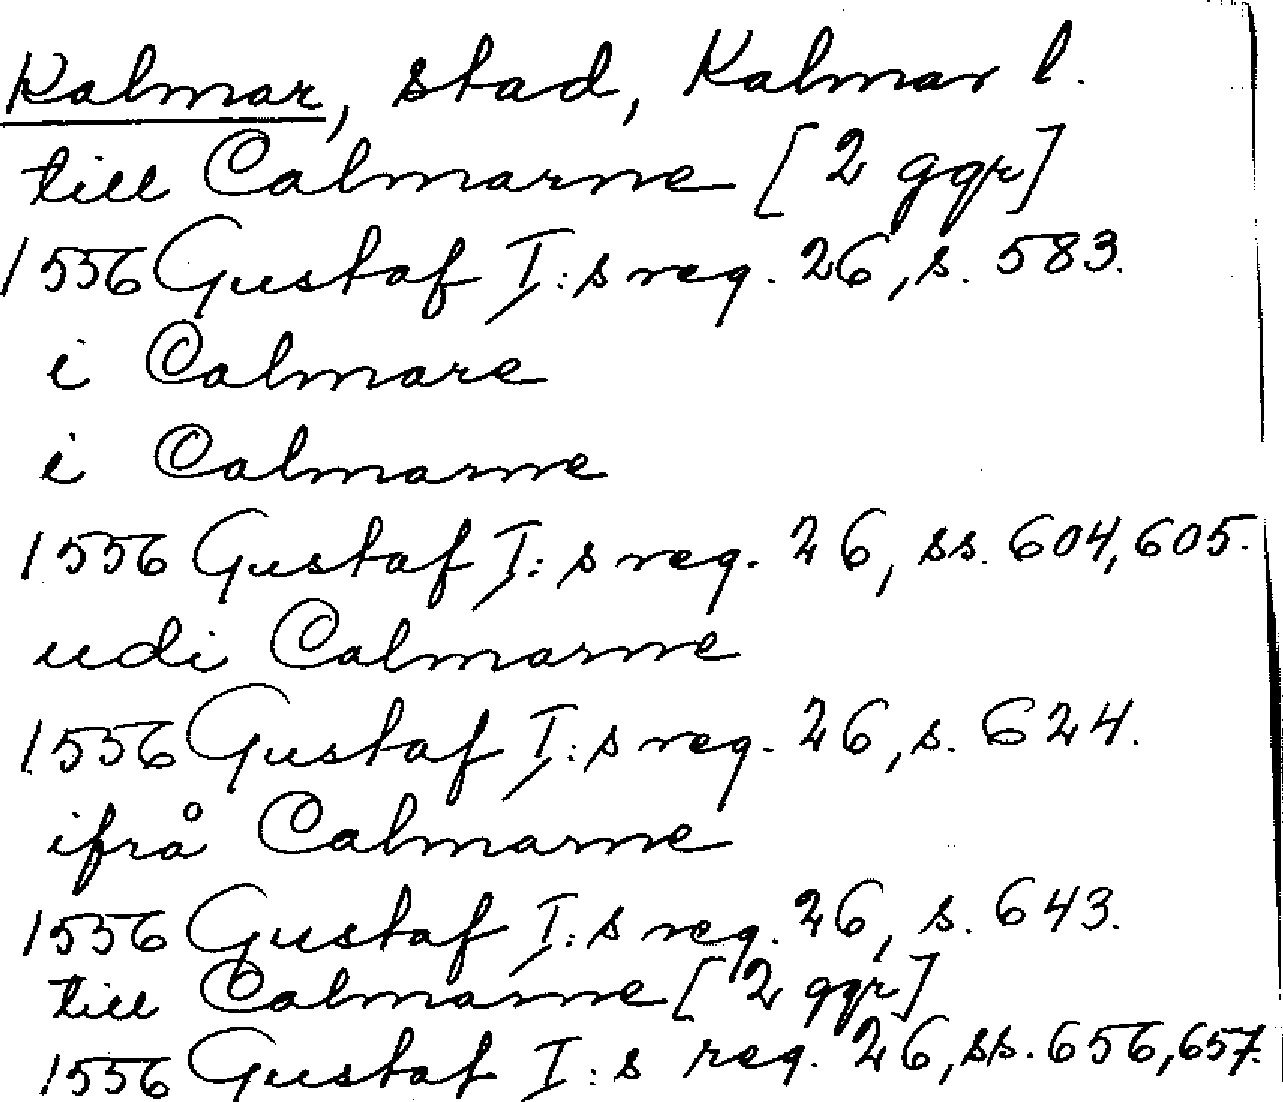 Kalmar, stad, Kalmar l.
till Calmarne [2 ggr]
1556 Gustaf I:s reg. 26, s. 583.
i Calmare
i Calmarne
1556 Gustaf I:s reg. 26, ss. 604, 605.
udi Calmarne
1556 Gustaf I:s reg. 26, s. 624.
ifrå Calmarne
1556 Gustaf I:s reg. 26, s. 643.
till Calmarne [2 ggr]
1556 Gustaf I:s reg. 26, ss. 656, 657.